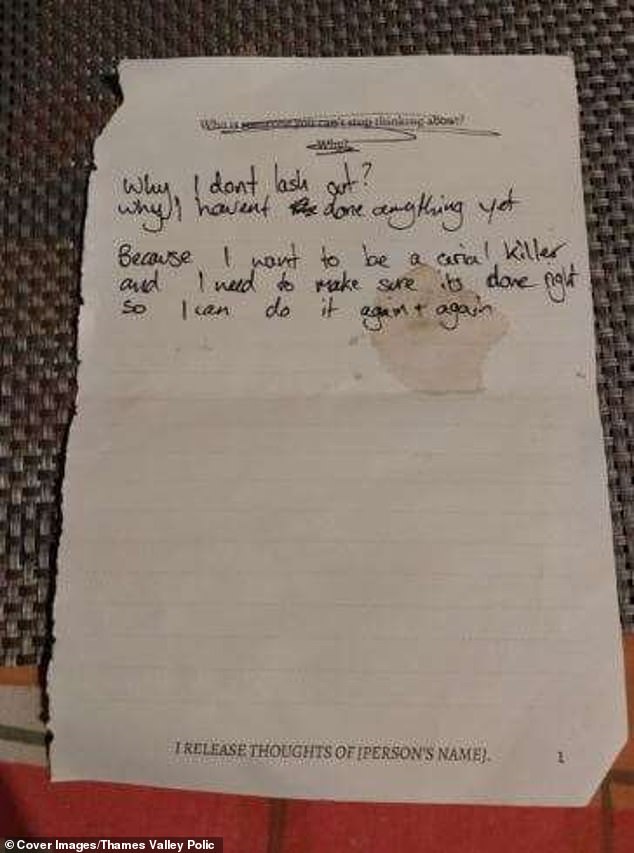 Who is someone you can't stop thinking about?
Why?
Why I dont lash out?
why I havent done anything yet
Because I want to be a cerial killer
and I need to make sure its done right
so I can do it again + again
I RELEASE THOUGHTS OF [PERSON'S NAME].
1
©Cover Images/Thames Valley Polic